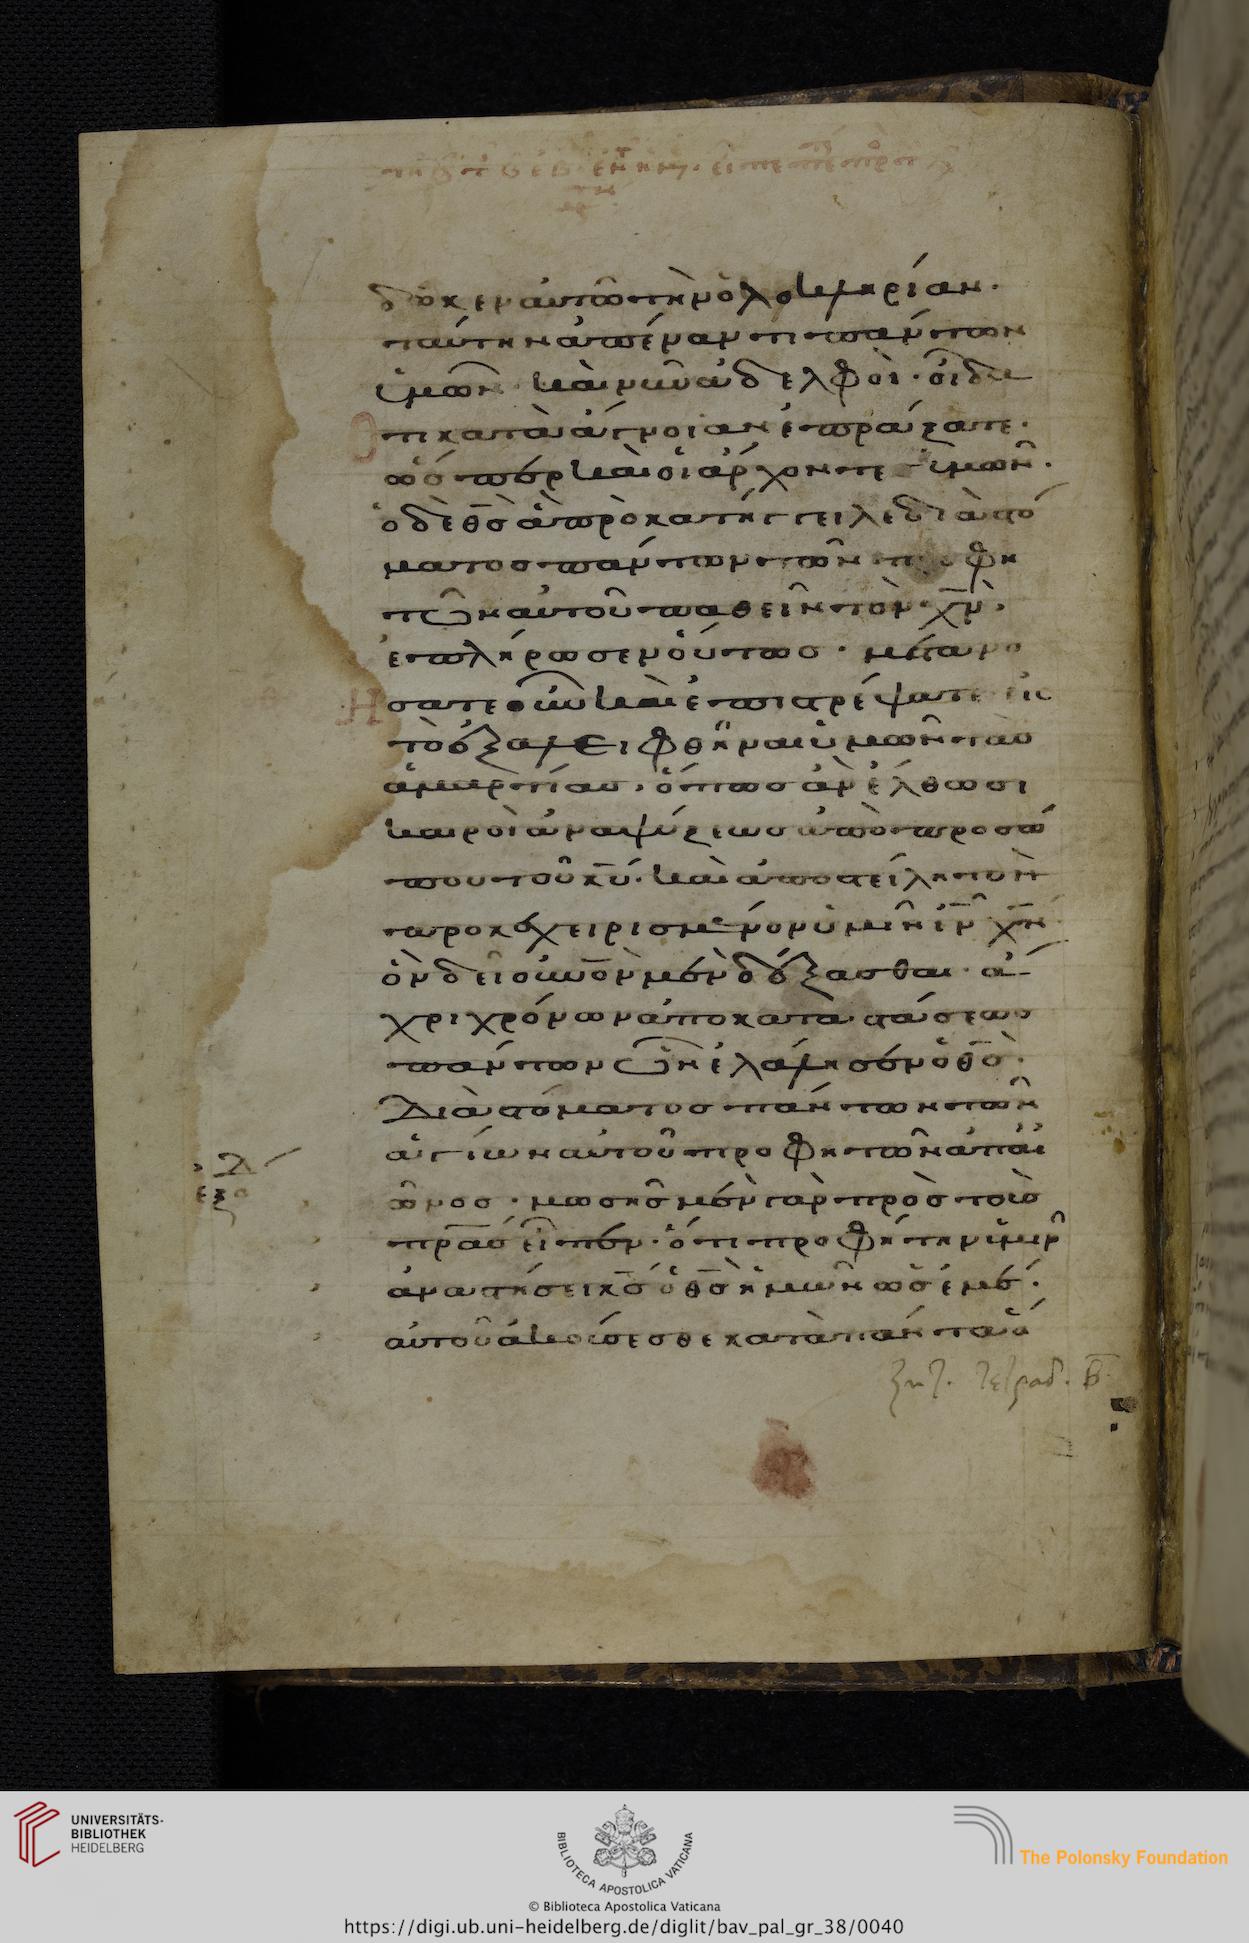 δωκεν αὐτῶ τὴν ὁλοκληρίαν
ταύτην ἀπέναντι πάντων
ὑμῶν· καὶ νῦν ἀδελφοὶ· οἶδα
τι κατὰ ἄγνοιαν ἐπράξατε·
ὥσπερ καὶ οἱ ἄρχοντες ὑμῶν·
ὁ δὲ θ̅ς̅ ἃ προκατήγγειλε διὰ στό
ματος πάντων τῶν προφη
τῶν αὐτοῦ παθεῖν τὸν χ̅ν̅·
ἐπλήρωσεν οὕτως· μετανο
ήσατε οὖν καὶ ἐπιστρέψατε εἰς
τὸ ἐξαλειφθῆναι ὑμῶν τὰς
ἁμαρτίας, ὅπως ἂν ἔλθωσι
καιροὶ ἀναψύξεως ἀπὸ προσώ
που τοῦ κ̅υ̅· καὶ ἀποστείλη τὸν
προκεχειρισμένον ὑμῖν ι̅ν̅ χ̅ν̅
ὃν δεῖ οὐνον μὲν δέξασθαι· ἄ
χρι χρόνων ἀποκαταστάσεως
πάντων ὧν ἐλάλησεν ὁ θ̅ς̅·
Διὰ στόματος πάντων τῶν
ἁγίων αὐτοῦ προφητῶν ἀπαι
ῶνος· μωσῆς μὲν γὰρ πρὸς τοὺς
π̅ρ̅ας εἶπεν· ὅτι προφήτην ὑμῖν
ἀναστήσει κ̅ς̅ ὁ θ̅ς̅ ἡμῶν ὡς ἐμέ·
αὐτοῦ ἀκούσεσθε κατὰ πάντα ὅ
ζητ. τετραδ. β̅
UNIVERSITÄTS-
BIBLIOTHEK
HEIDELBERG
BIBLIOTECA APOSTOLICA VATICANA
The Polonsky Foundation
© Biblioteca Apostolica Vaticana
https://digi.ub.uni-heidelberg.de/diglit/bav_pal_gr_38/0040